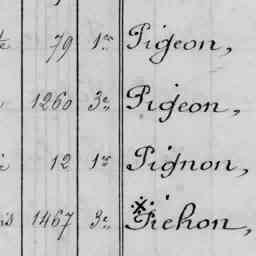 79 1re Pigeon,
1260 3e Pigeon,
12 1re Pignon,
is 1467 3e Pichon,